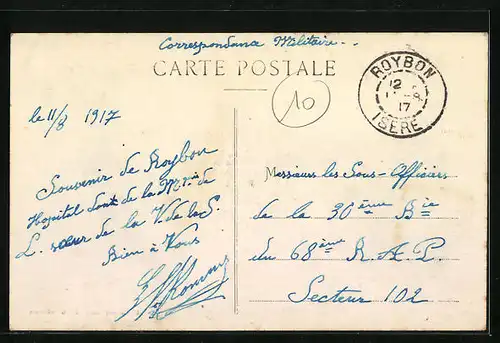 Correspondance Militaire
CARTE POSTALE
10
ROYBON
12
17
ISÈRE
le 11/8 1917
Souvenir de Roybon
Hopital dont de la
L. sœur de la V. de la S.
Bien à Vous
Messieurs les Sous-Officiers
de la 30ème Bie
du 68ème R.A.P.
Secteur 102